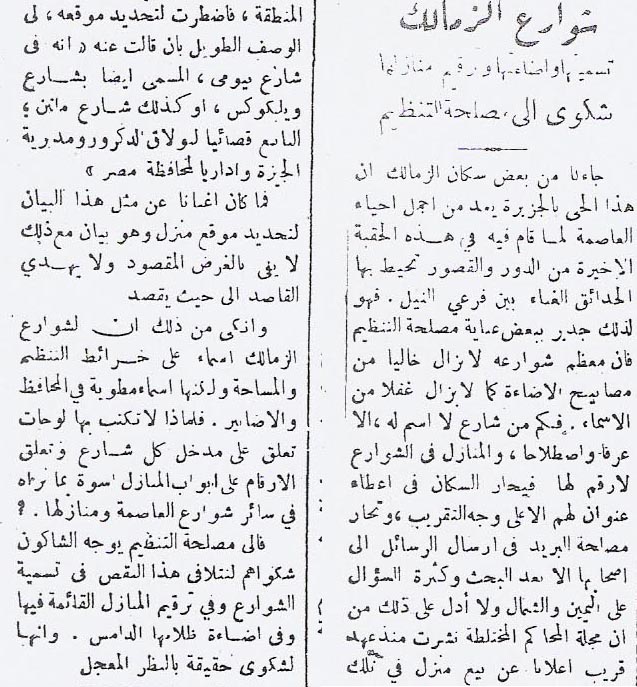 شوارع الزمالك
تسميتها واضاءتها وترقيم منازلها
شكوى الى مصلحة التنظيم
جاءنا من بعض سكان الزمالك ان
هذا الحى بالجزيرة يعد من اجمل احياء
العاصمة لما قام فيه في هذه الحقبة
الاخيرة من الدور والقصور تحيط بها
الحدائق الغناء بين فرعي النيل . فهو
لذلك جدير ببعض عناية مصلحة التنظيم
فان معظم شوارعه لا يزال خاليا من
مصابيح الاضاءة كما لا يزال غفلا من
الاسماء . فكم من شارع لا اسم له ، الا
عرفا واصطلاحا ، والمنازل فى الشوارع
لارقم لها فيحار السكان فى اعطاء
عنوان لهم الا على وجه التقريب ، وتحار
مصلحة البريد فى ارسال الرسائل الى
اصحابها الا بعد البحث وكثرة السؤال
على اليمين والشمال ولا أدل على ذلك من
ان مجلة المحاكم المختلطة نشرت منذ عهد
قريب اعلانا عن بيع منزل في تلك
المنطقة ، فاضطرت لتحديد موقعه ، الى
الوصف الطويل بان قالت عنه « انه فى
شارع بيومى ، المسمى ايضا بشارع
ويلكوكس ، او كذلك شارع ماتن ؛
التابع قضائيا لبولاق الدكرور ومديرية
الجيزة واداريا لمحافظة مصر »
فما كان اغنانا عن مثل هذا البيان
لتحديد موقع منزل وهو بيان مع ذلك
لا يفى بالغرض المقصود ولا يهدي
القاصد الى حيث يقصد
وانكى من ذلك ان لشوارع
الزمالك اسماء على خرائط التنظيم
والمساحة ولكنها اسماء مطوية في المحافظ
والاضابير . فلماذا لا تكتب بها لوحات
تعلق على مدخل كل شارع وتعلق
الارقام على ابواب المنازل اسوة بما نراه
في سائر شوارع العاصمة ومنازلها . ؟
فالى مصلحة التنظيم يوجه الشاكون
شكواهم لتتلافى هذا النقص فى تسمية
الشوارع وفي ترقيم المنازل القائمة فيها
وفى اضاءة ظلامها الدامس . وانها
لشكوى حقيقة بالنظر المعجل